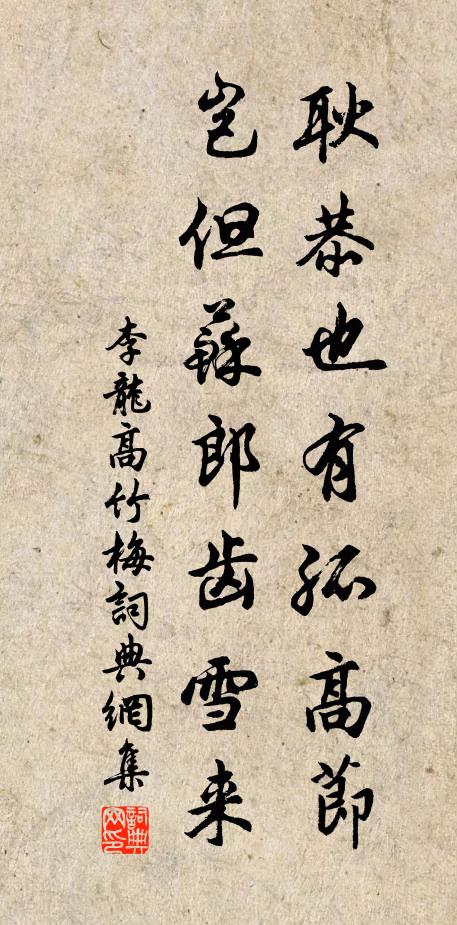 耿恭也有孤高節
豈但蘇郎齿雪来
李龍高竹梅詞典網集
詞典网印